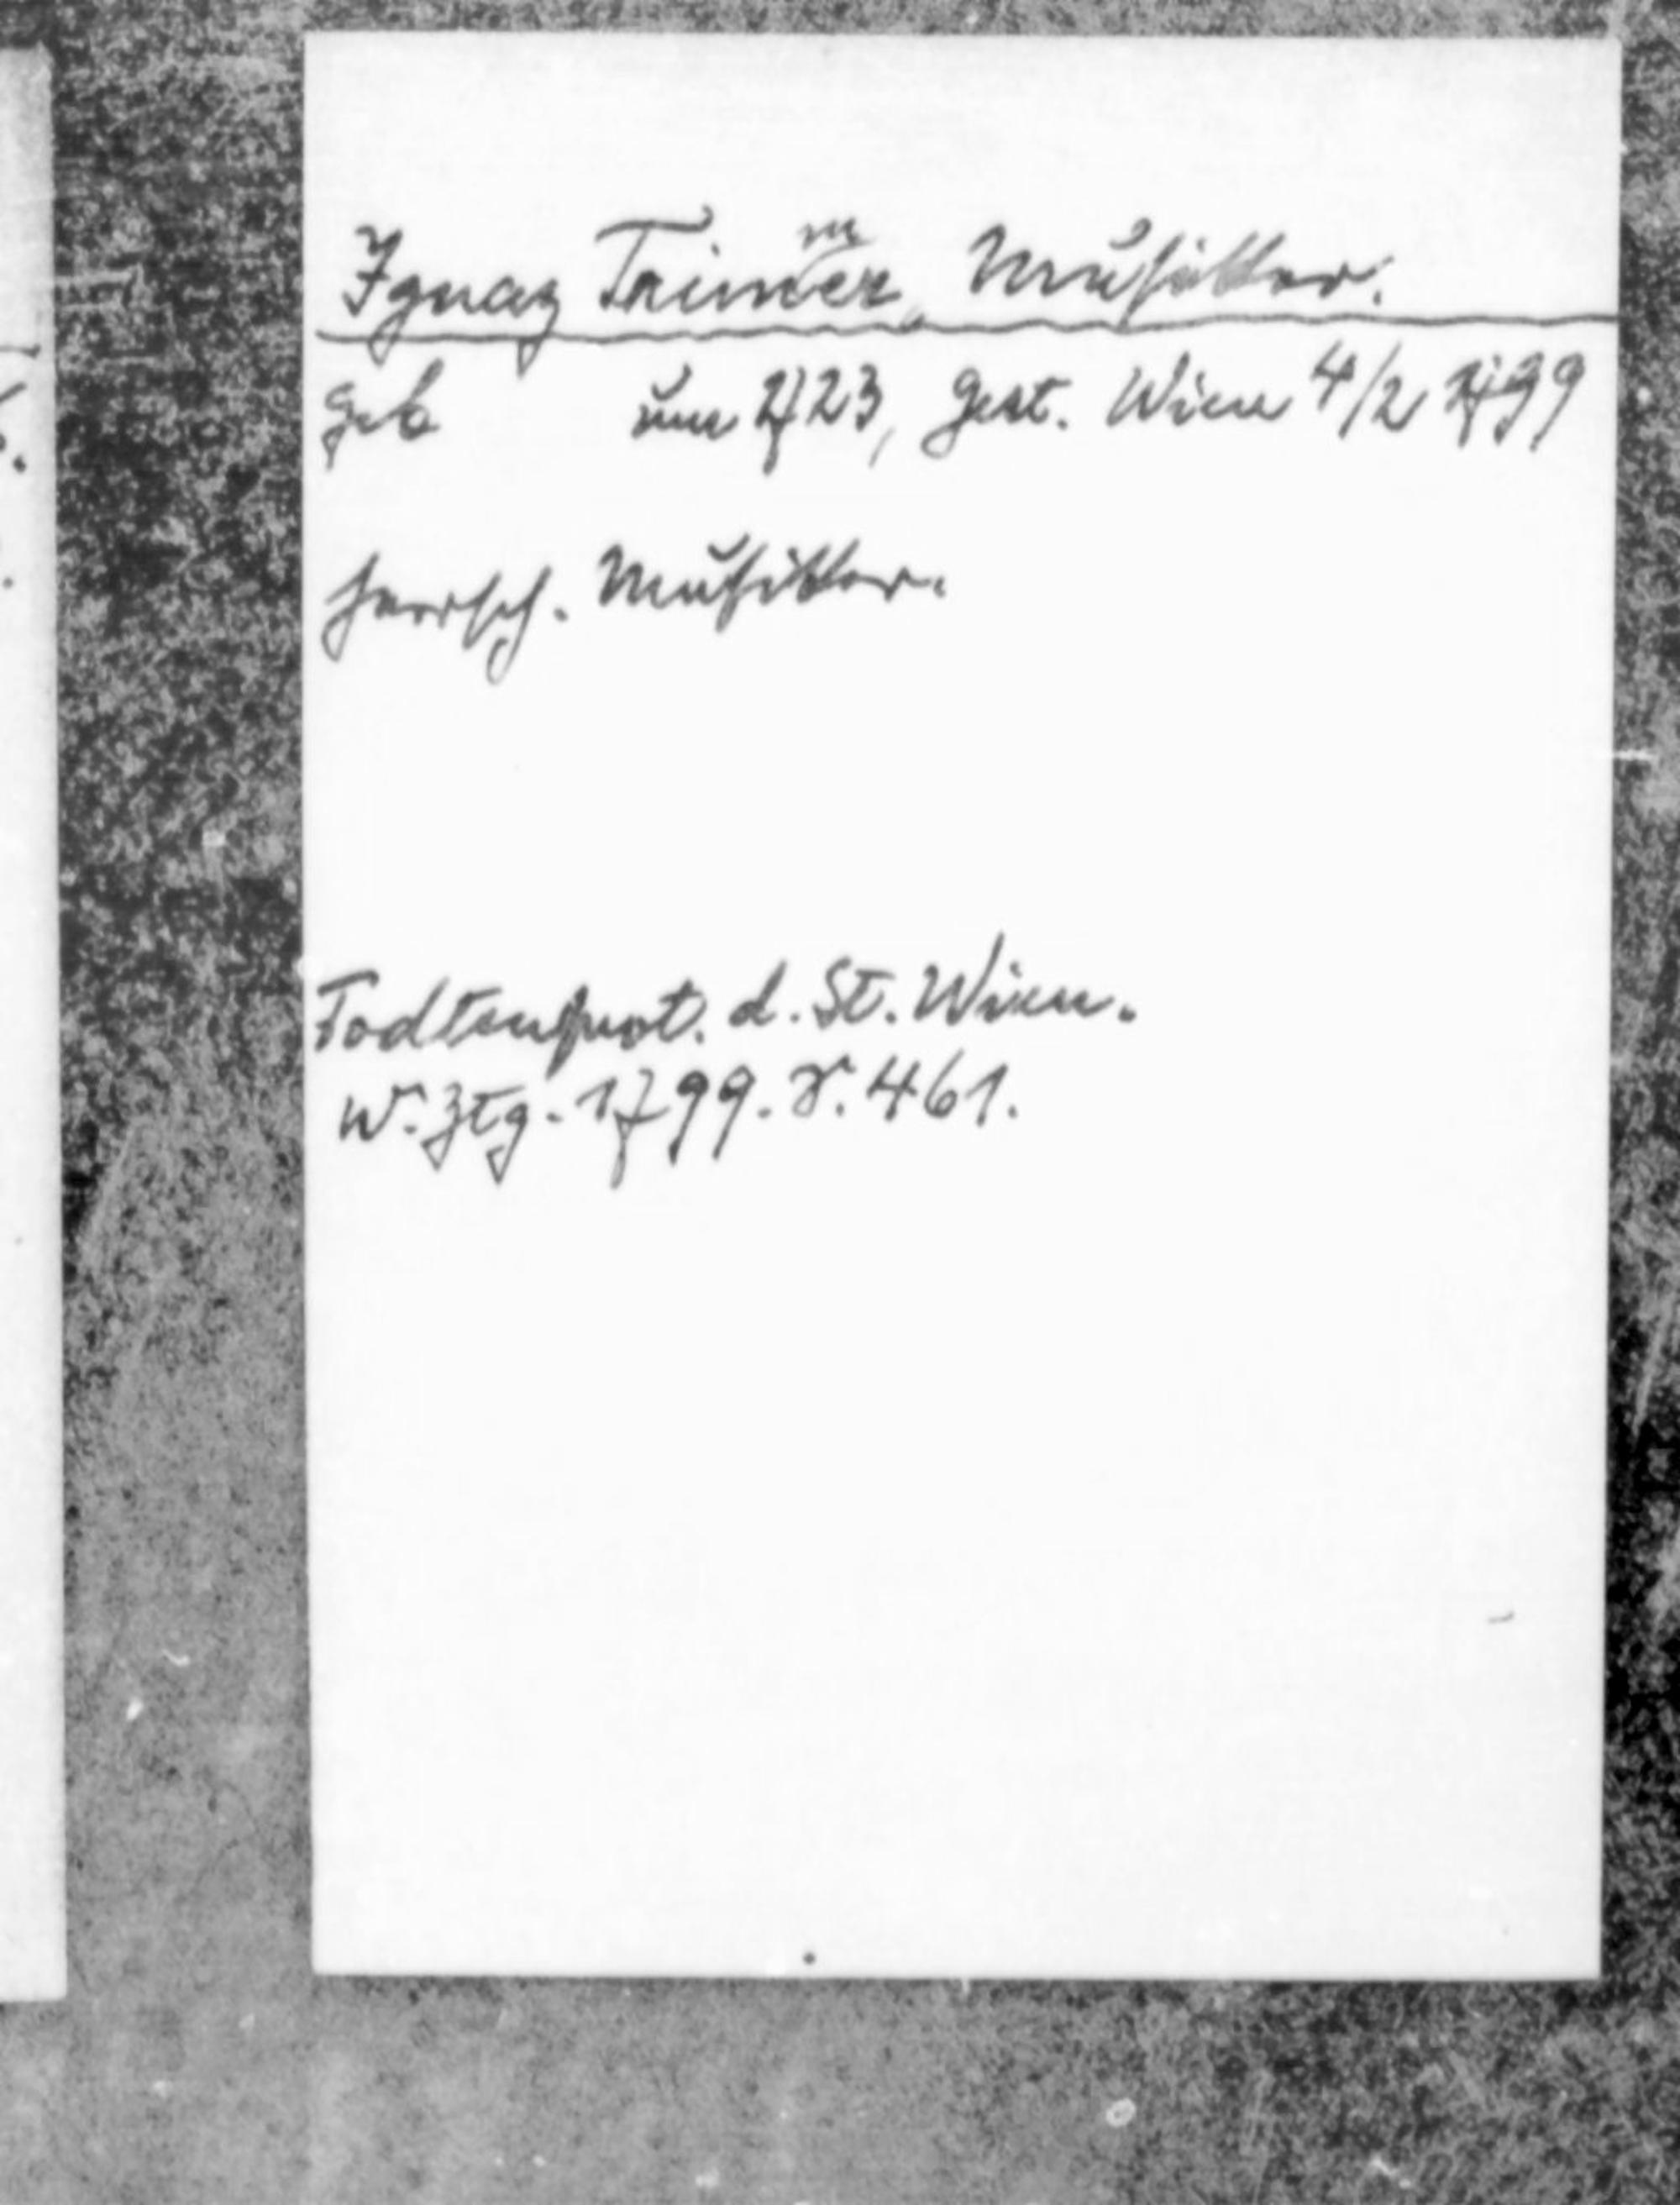 Ignaz Trimmer, Musiker.
Geb um 1723, Gest. Wien 4/2 1799
herrsch. Musiker.
Todtenprot. d. St. Wien.
W. Ztg. 1799. S. 461.